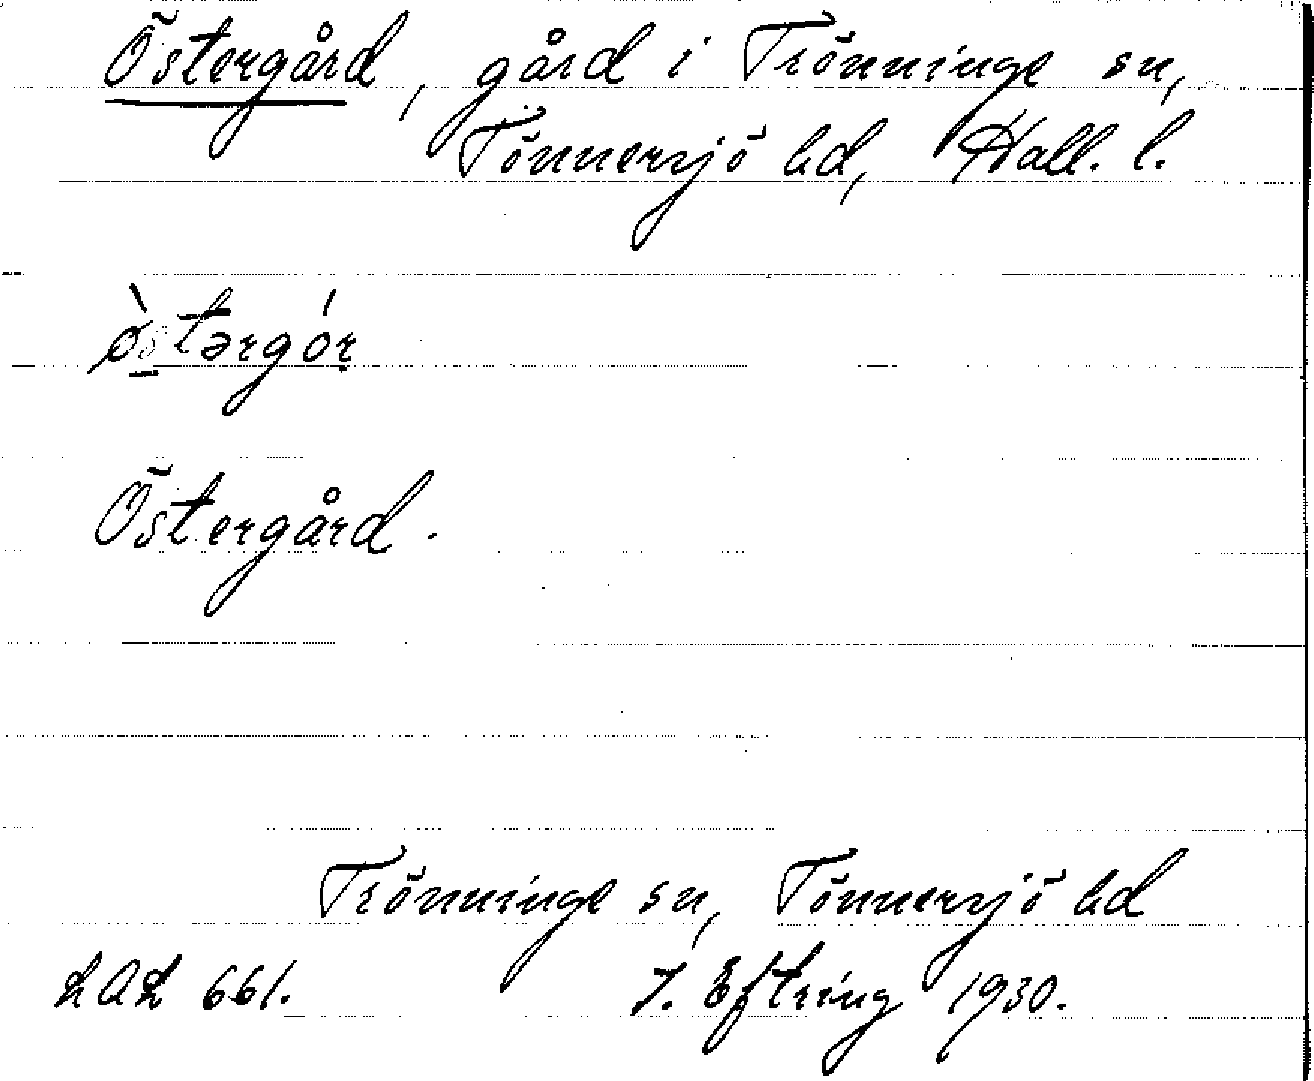 Östergård, gård i Trönninge sn,
Tönnersjö hd, Hall. l.
ø̀stərgór
Östergård.
Trönninge sn, Tönnersjö hd
LAL 661. J. Eftring 1930.